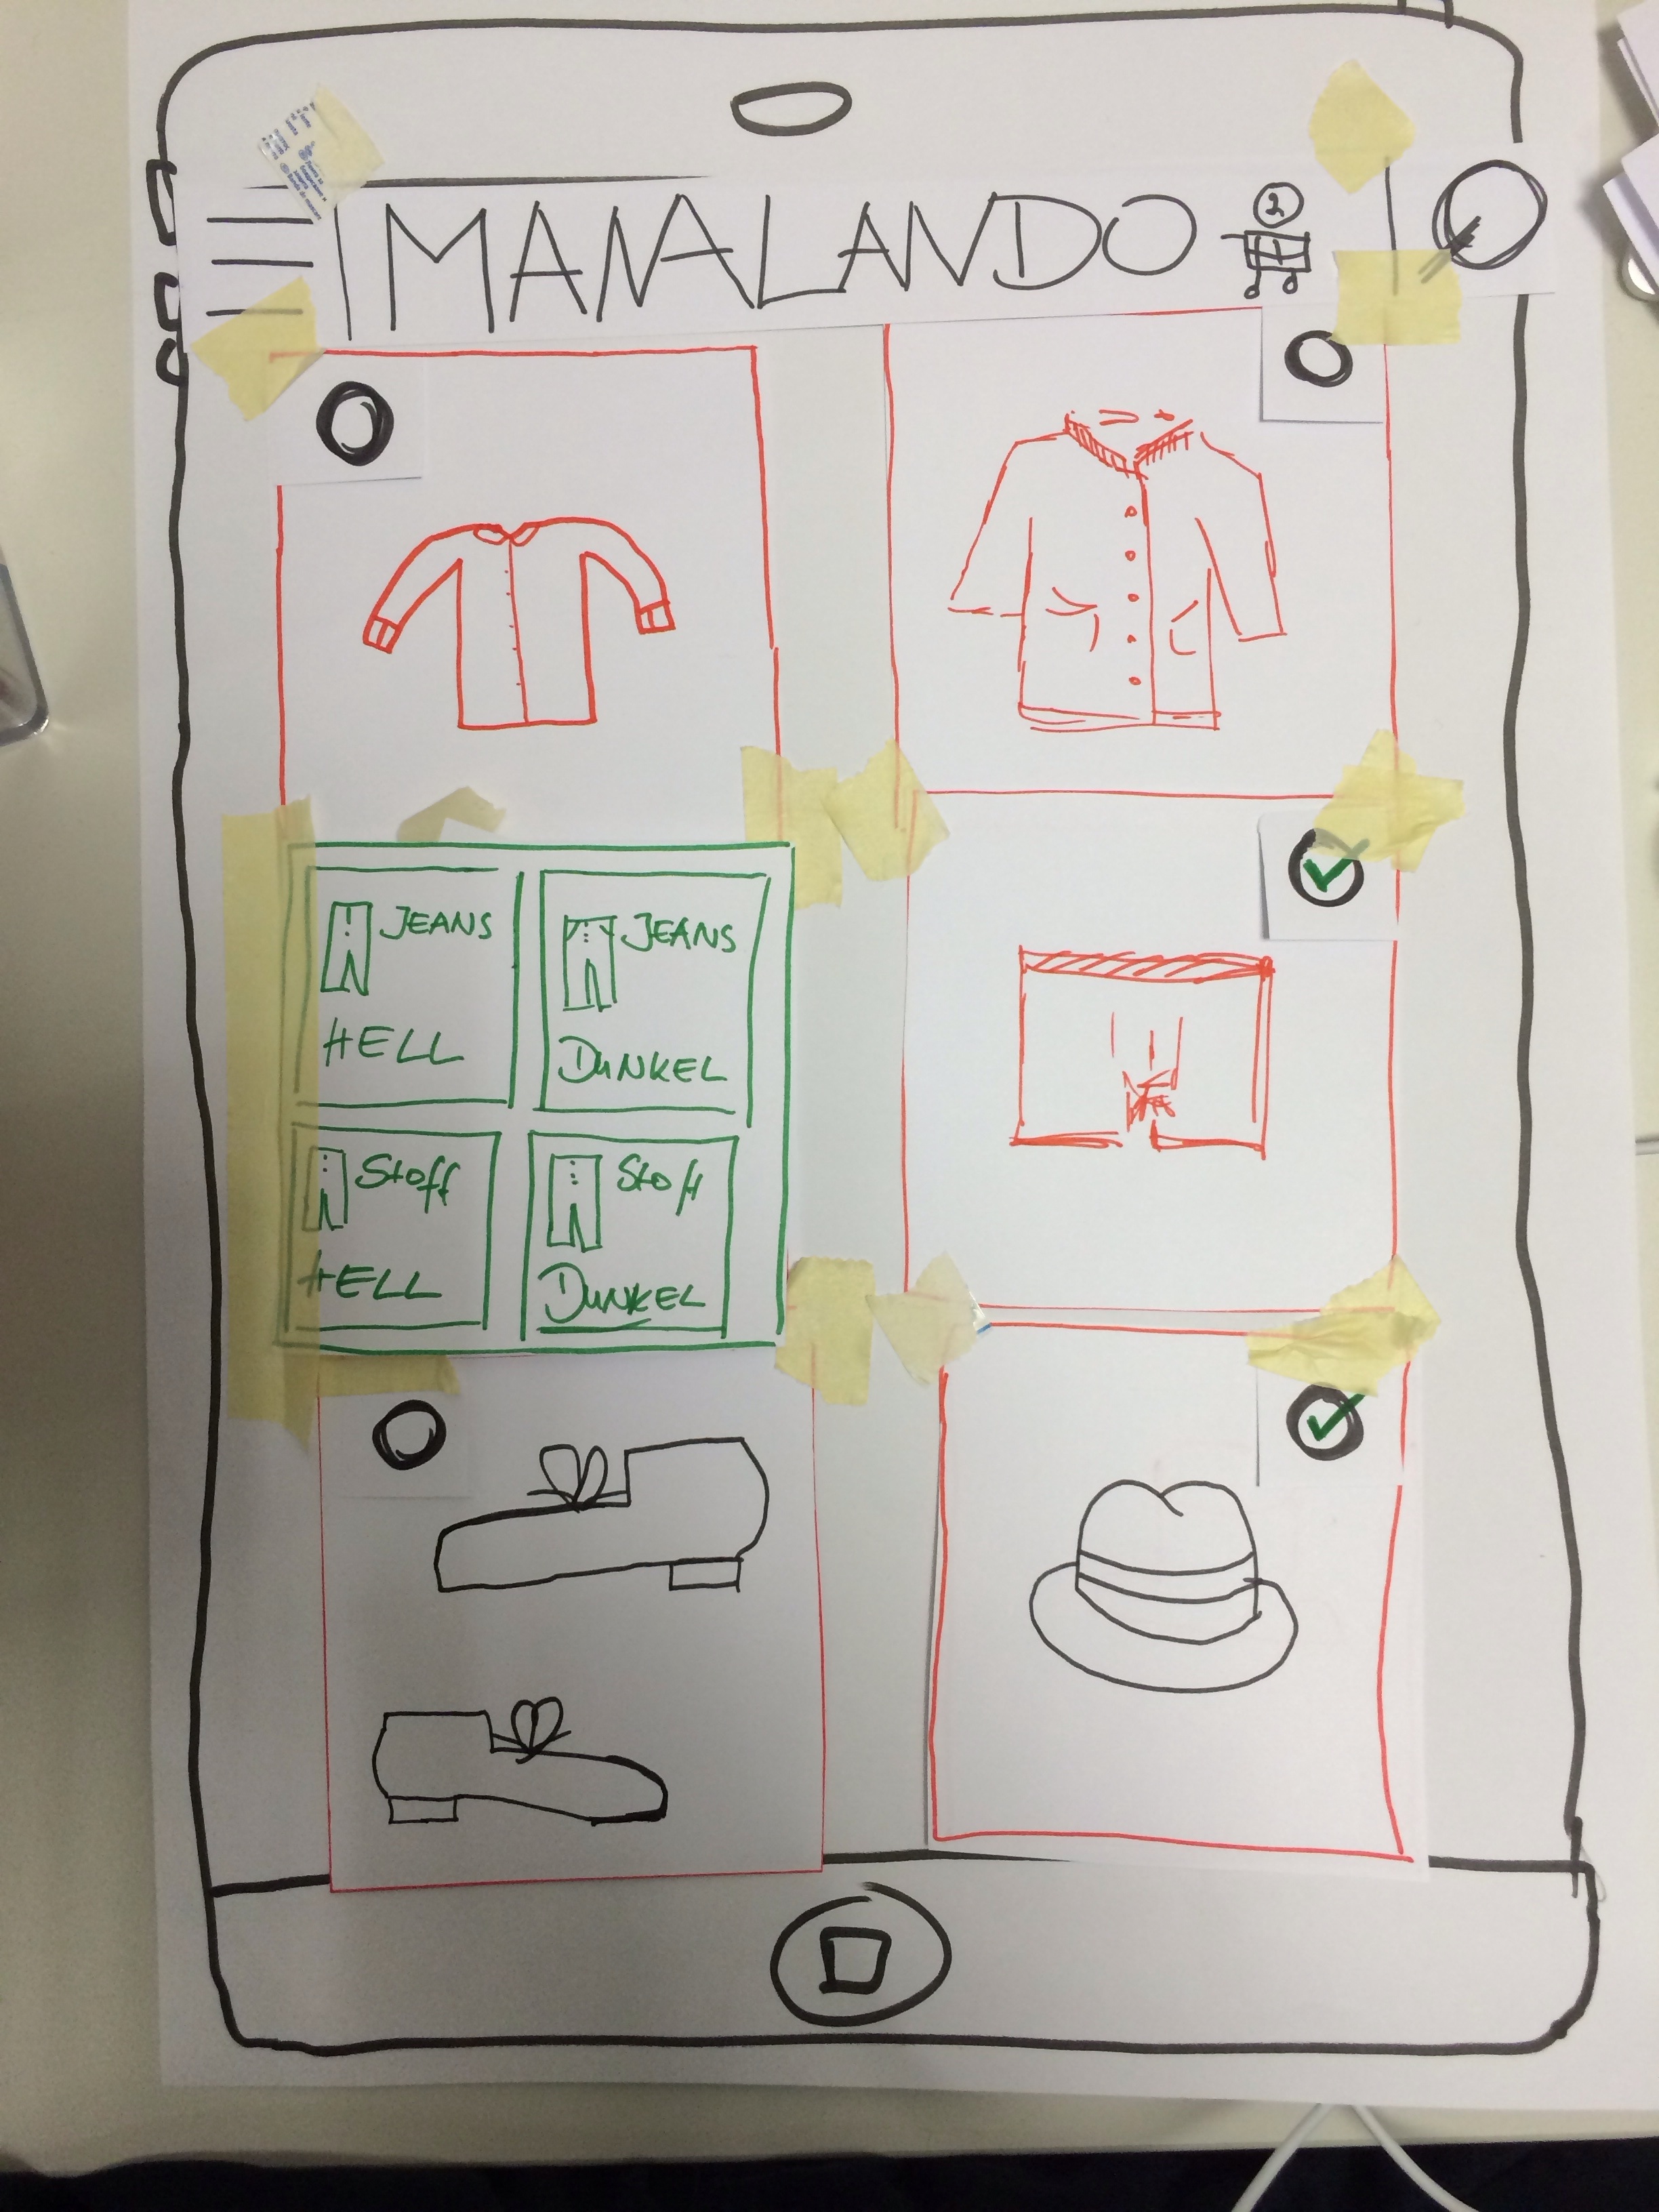 MANALANDO
2
JEANS
HELL
JEANS
DUNKEL
Stoff
HELL
Stoff
DUNKEL